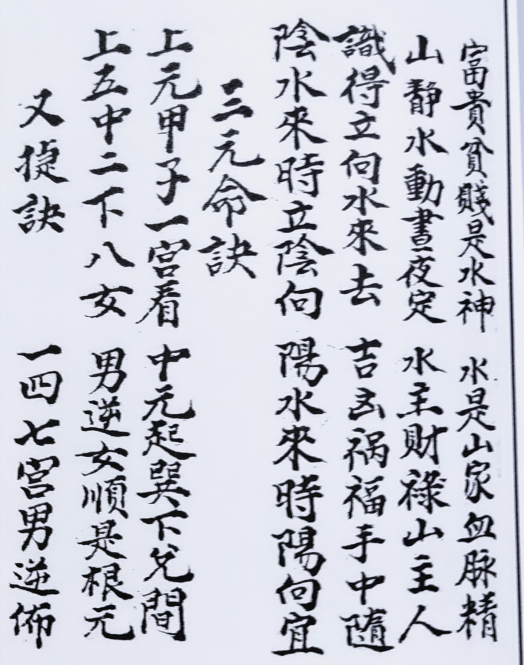 富貴貧賤是水神 水是山家血脉精
山靜水動晝夜定 水主財祿山主人
識得立向水來去 吉凶禍福手中隨
陰水來時立陰向 陽水來時陽向宜
三元命訣
上元甲子一宮看 中元起巽下兌間
上五中二下八女 男逆女順是根元
又捷訣 一四七宮男逆佈